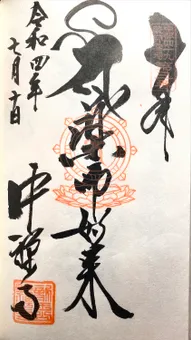 奉拝
薬師如来
中禅寺
令和四年
七月十日